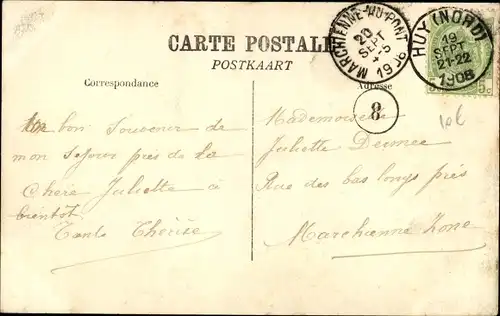 CARTE POSTALE
POSTKAART
MARCHIENNE-AU-PONT
20
SEPT
HUY (NORD)
19
SEPT
21-22
1908
5c
Correspondance
Adresse
8
Un bon Souvenir de
mon Sejour près de la
Chère Juliette à
bientôt
Tante Thérèse
Mademoiselle
Juliette Dumee
Rue des bas longs prés
Marchienne Zone